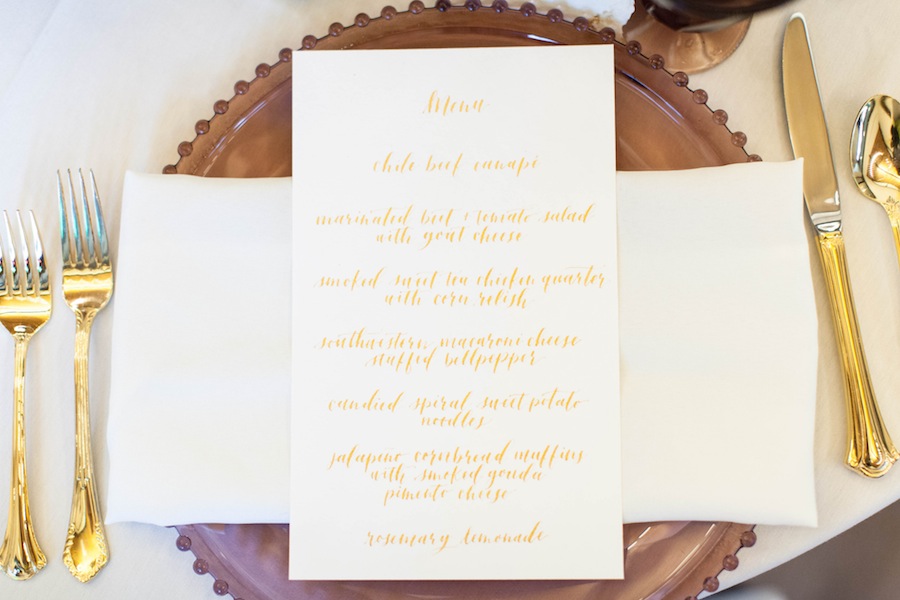 Menu
chile beef canapé
marinated beet + tomato salad
with goat cheese
smoked sweet tea chicken quarter
with corn relish
southwestern macaroni cheese
stuffed bellpepper
candied spiral sweet potato
noodles
jalapeno cornbread muffins
with smoked gouda
pimento cheese
rosemary lemonade